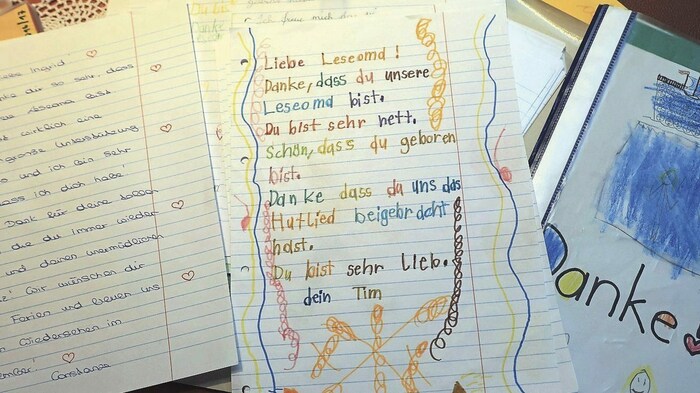 Ingrid
du so sehr, dass
wirklich eine
große Unterstützung
und ich bin sehr
dass ich dich habe
Dank für deine tollen
die du immer wieder
und deinen unermüdlichen
Wir wünschen dir
Ferien und freuen uns
Wiedersehen im
Constanze
Liebe Leseomd!
Danke, dass du unsere
Leseomd bist.
Du bist sehr nett.
Schön, dass du geboren
bist.
Danke dass du uns das
Hutlied beigebracht
hast.
Du bist sehr lieb.
dein Tim
Danke